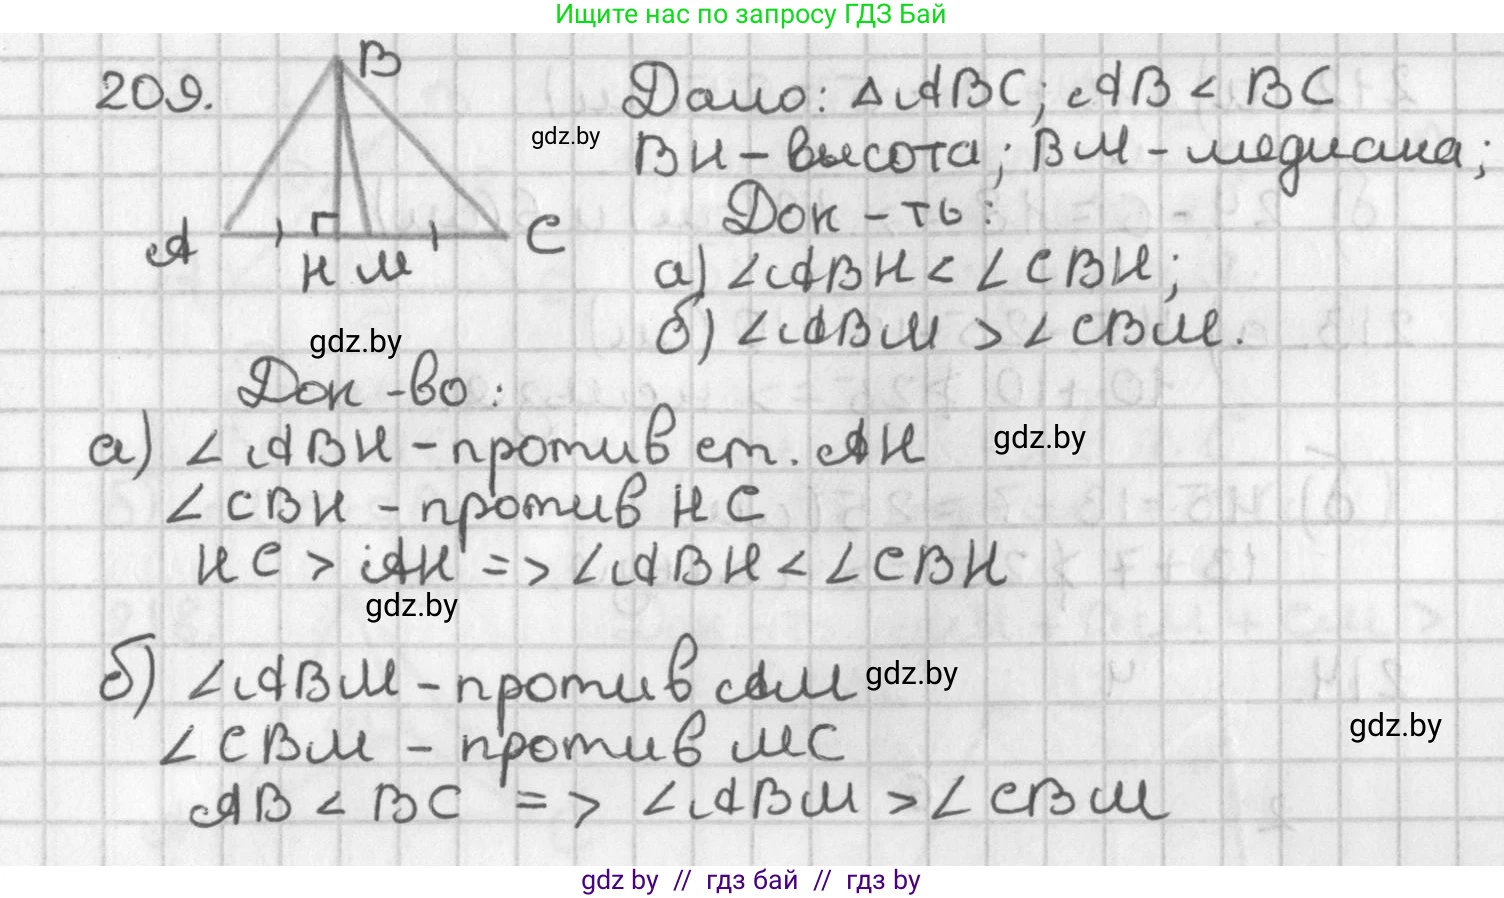 Ищите нас по запросу ГДЗ Бай
209.
B
A
H M
C
Дано: △ABC; AB < BC
gdz.by
BH - высота; BM - медиана;
Док - ть:
а) ∠ABH < ∠CBH;
б) ∠ABM > ∠CBM.
gdz.by
Док -во:
а) ∠ABH - против ст. AH
gdz.by
∠CBH - против HC
HC > AH => ∠ABH < ∠CBH
gdz.by
б) ∠ABM - против AM
gdz.by
∠CBM - против MC
gdz.by
AB < BC => ∠ABM > ∠CBM
gdz by // гдз бай // гдз by